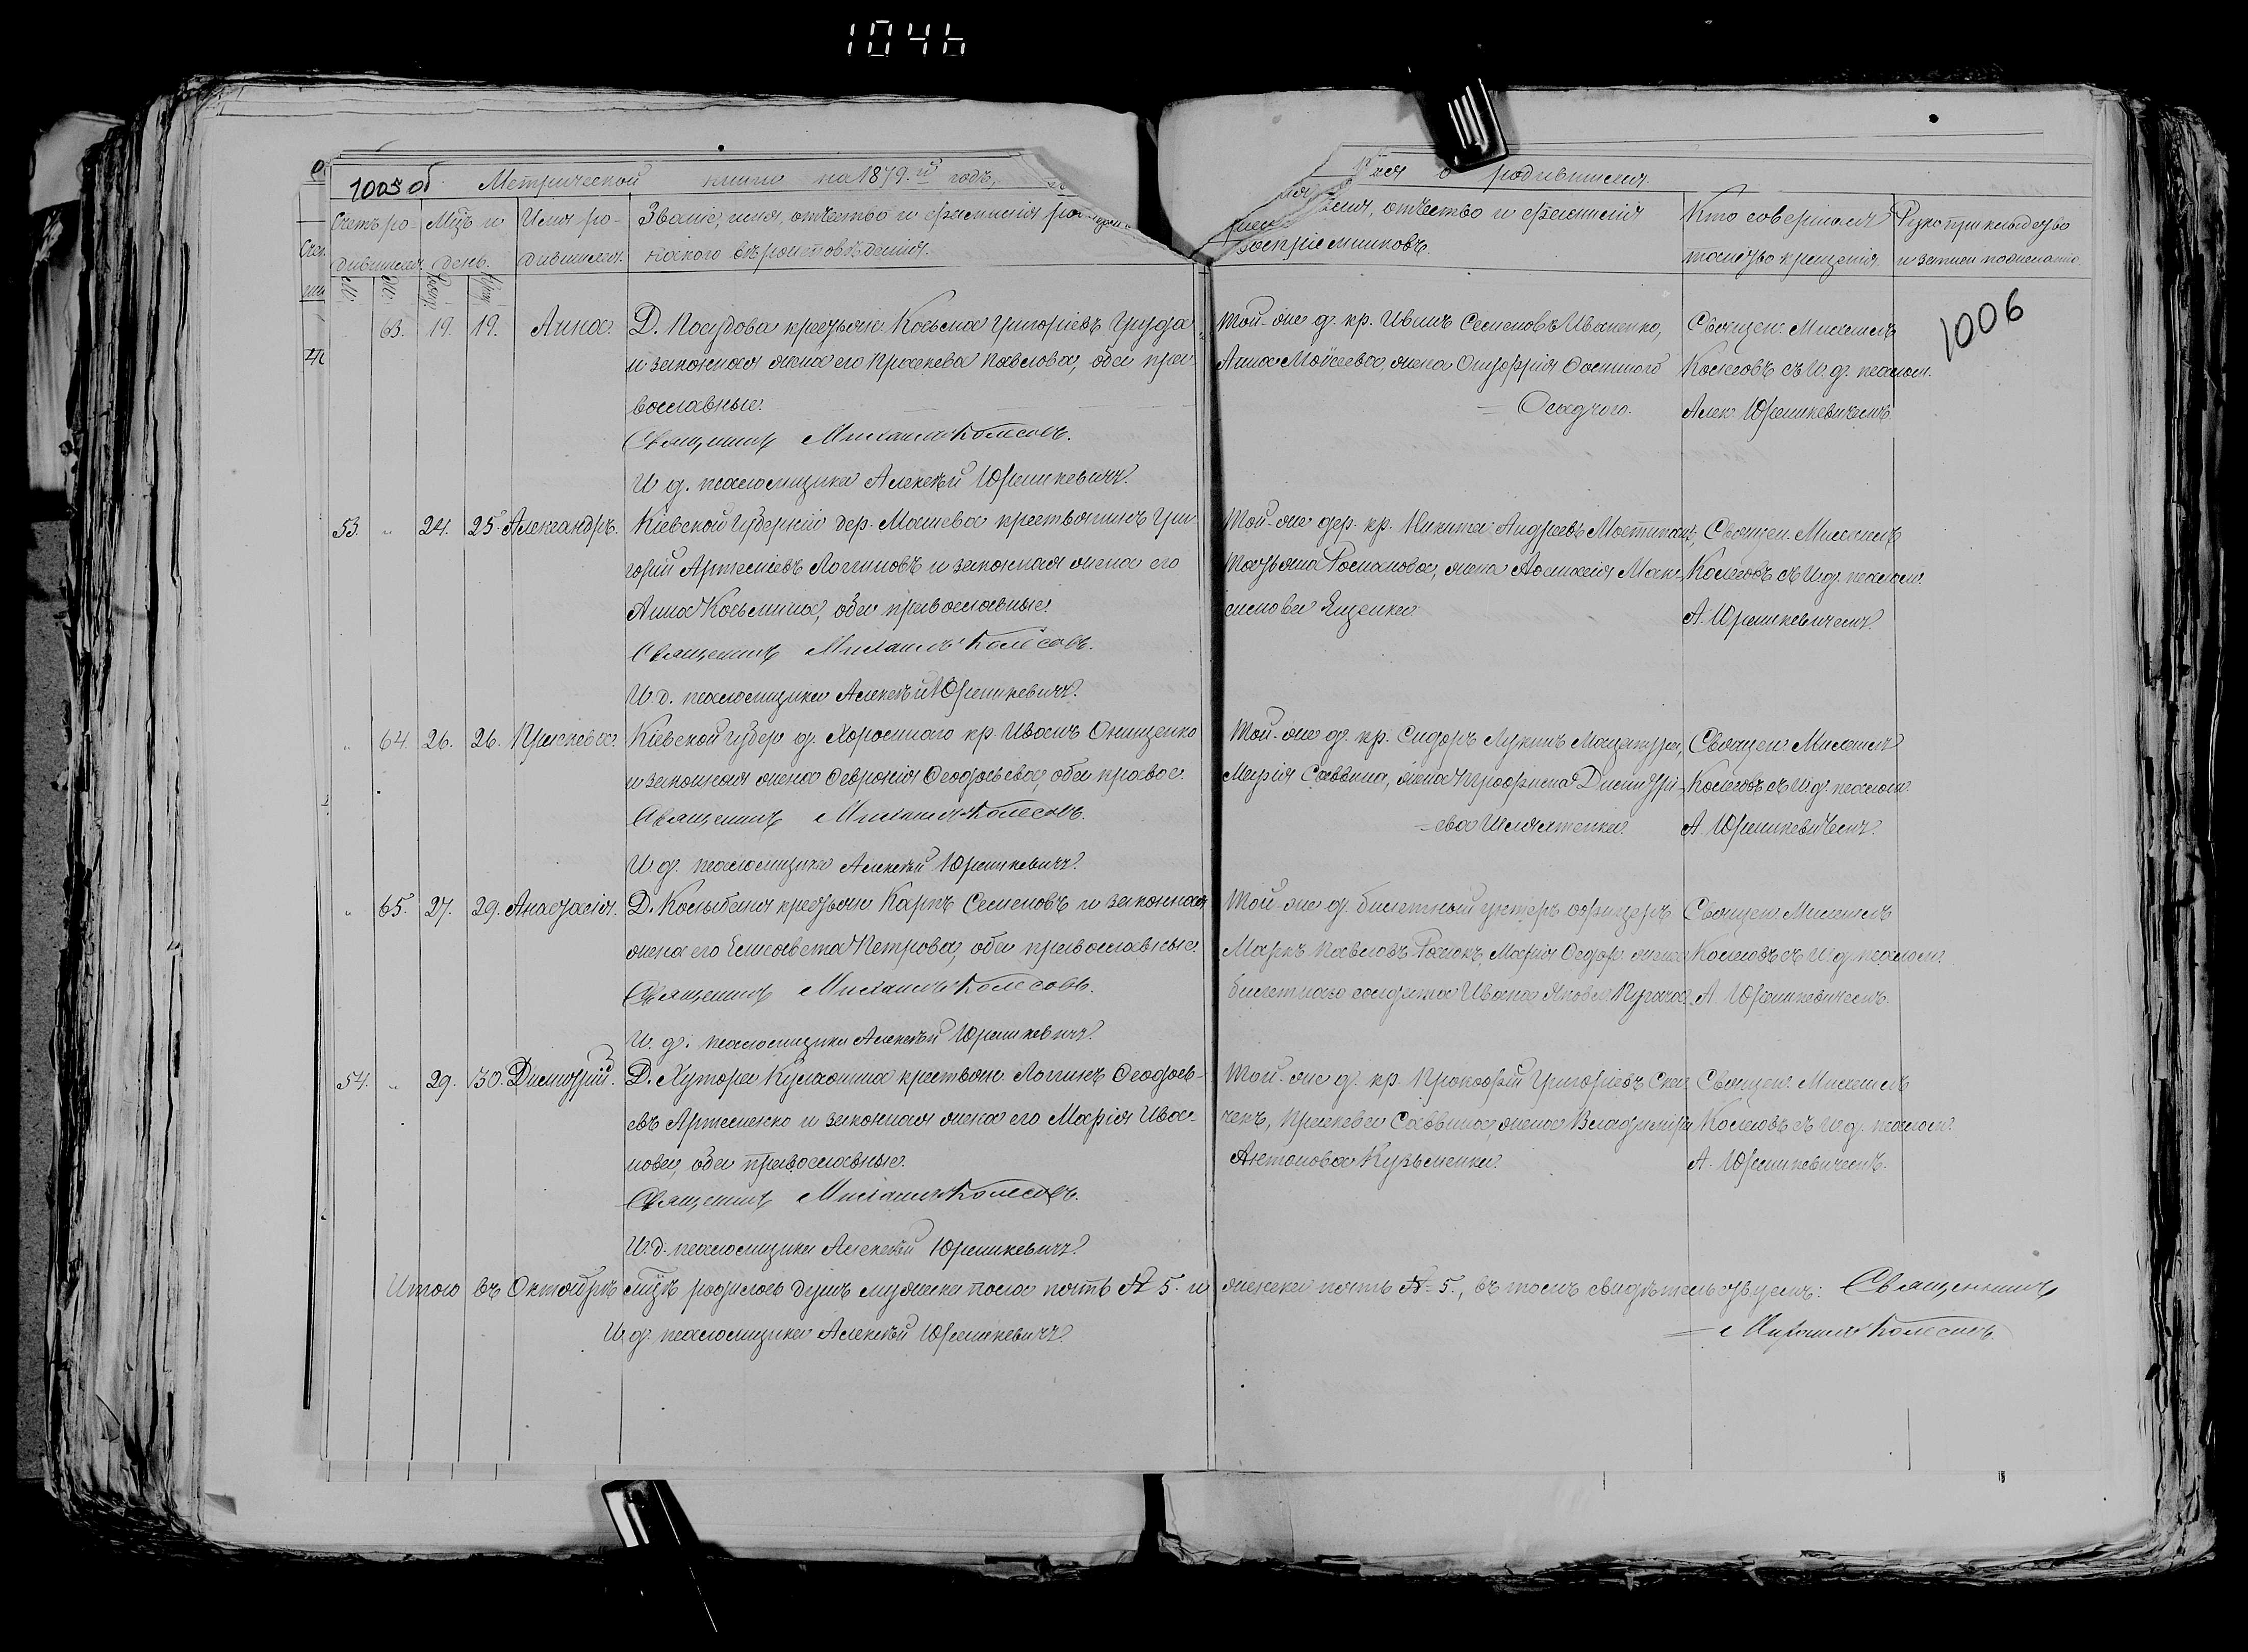 1046
1005 об Метрической книги на 1879.й годъ,
о родившихся.
Счетъ ро-
дившихся.
Мцъ и
день.
Имя ро-
дившихся.
Званіе, имя, отчество и фамилія
какого вѣроисповѣданія.
имя, отчество и фамилія
воспріемниковъ.
Кто совершалъ
таинство крещенія.
Рукоприкладство
1006
63. 19. 19. Анна. Д. крестьян. Косьма Григоріевъ Груда
и законная жена его Праскева Павлова, оба пра-
вославные.
Священникъ Михаилъ Колесовъ.
И д. псаломщика Алексѣй Юрашкевичъ.
Той-же д. кр. Иванъ Семеновъ Иваненко,
Анна Моѵсеева, жена Онуфрія
Осадчого.
Священ. Михаилъ
Колесовъ съ И. д. псалом.
Алек. Юрашкевичемъ.
53. " 24. 25. Александръ. Кіевской Губерніи дер. крестьянинъ Гри-
горій Артеміевъ Логиновъ и законная жена его
Анна Косьмина, оба православные.
Священникъ Михаилъ Колесовъ.
И. д. псаломщика Алексѣй Юрашкевичъ.
Той-же дер. кр. Никита Андреевъ
Татьяна Романова, жена Мак-
симова Ященка.
Священ. Михаилъ
Колесовъ съ И. д. псалом.
А. Юрашкевичемъ.
" 64. 26. 26. Праскева. Кіевской губер. д. кр. Иванъ Онищенко
и законная жена Феѳдосьева, оба правос.
Священникъ Михаилъ Колесовъ.
И д. псаломщика Алексѣй Юрашкевичъ.
Той-же д. кр. Сидоръ Лукинъ Мацапура,
Марія Саввина, жена Димитрі-
ева
Священ. Михаилъ
Колесовъ съ И д. псалом.
А. Юрашкевичемъ.
" 65. 27. 29. Анастасія. Д. крестьян. Карпъ Семеновъ и законная
жена его Елисавета Петрова, оба православные.
Священникъ Михаилъ Колесовъ.
И. д. псаломщика Алексѣй Юрашкевичъ.
Той-же д. билетный унтеръ офицеръ
Маркъ Павловъ Марія Федор. жена
билетнаго солдата Ивана Яковл.
Священ. Михаилъ
Колесовъ съ И д. псалом.
А. Юрашкевичемъ.
54. " 29. 30. Димитрій. Д. Хутора крестьян. Логинъ Феодось-
евъ Артеменко и законная жена его Марія Ива-
нова, оба православные.
Священникъ Михаилъ Колесовъ.
И. д. псаломщика Алексѣй Юрашкевичъ.
Той-же д. кр. Прокофій Григоріевъ
Праскева Саввина, жена Владиміра
Антонова Кузьменка.
Священ. Михаилъ
Колесовъ съ И. д. псалом.
А. Юрашкевичемъ.
Итого въ Октябрѣ мцѣ родилось душъ мужеска пола пять № 5. и женска пять № 5., въ томъ свидѣтельствуемъ: Священникъ
Михаилъ Колесовъ.
И. д. псаломщика Алексѣй Юрашкевичъ.